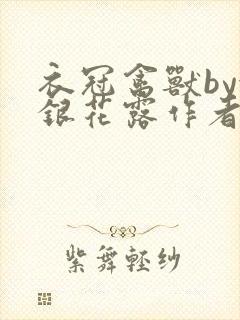 衣冠禽獸by
銀花露作者
紫舞輕紗